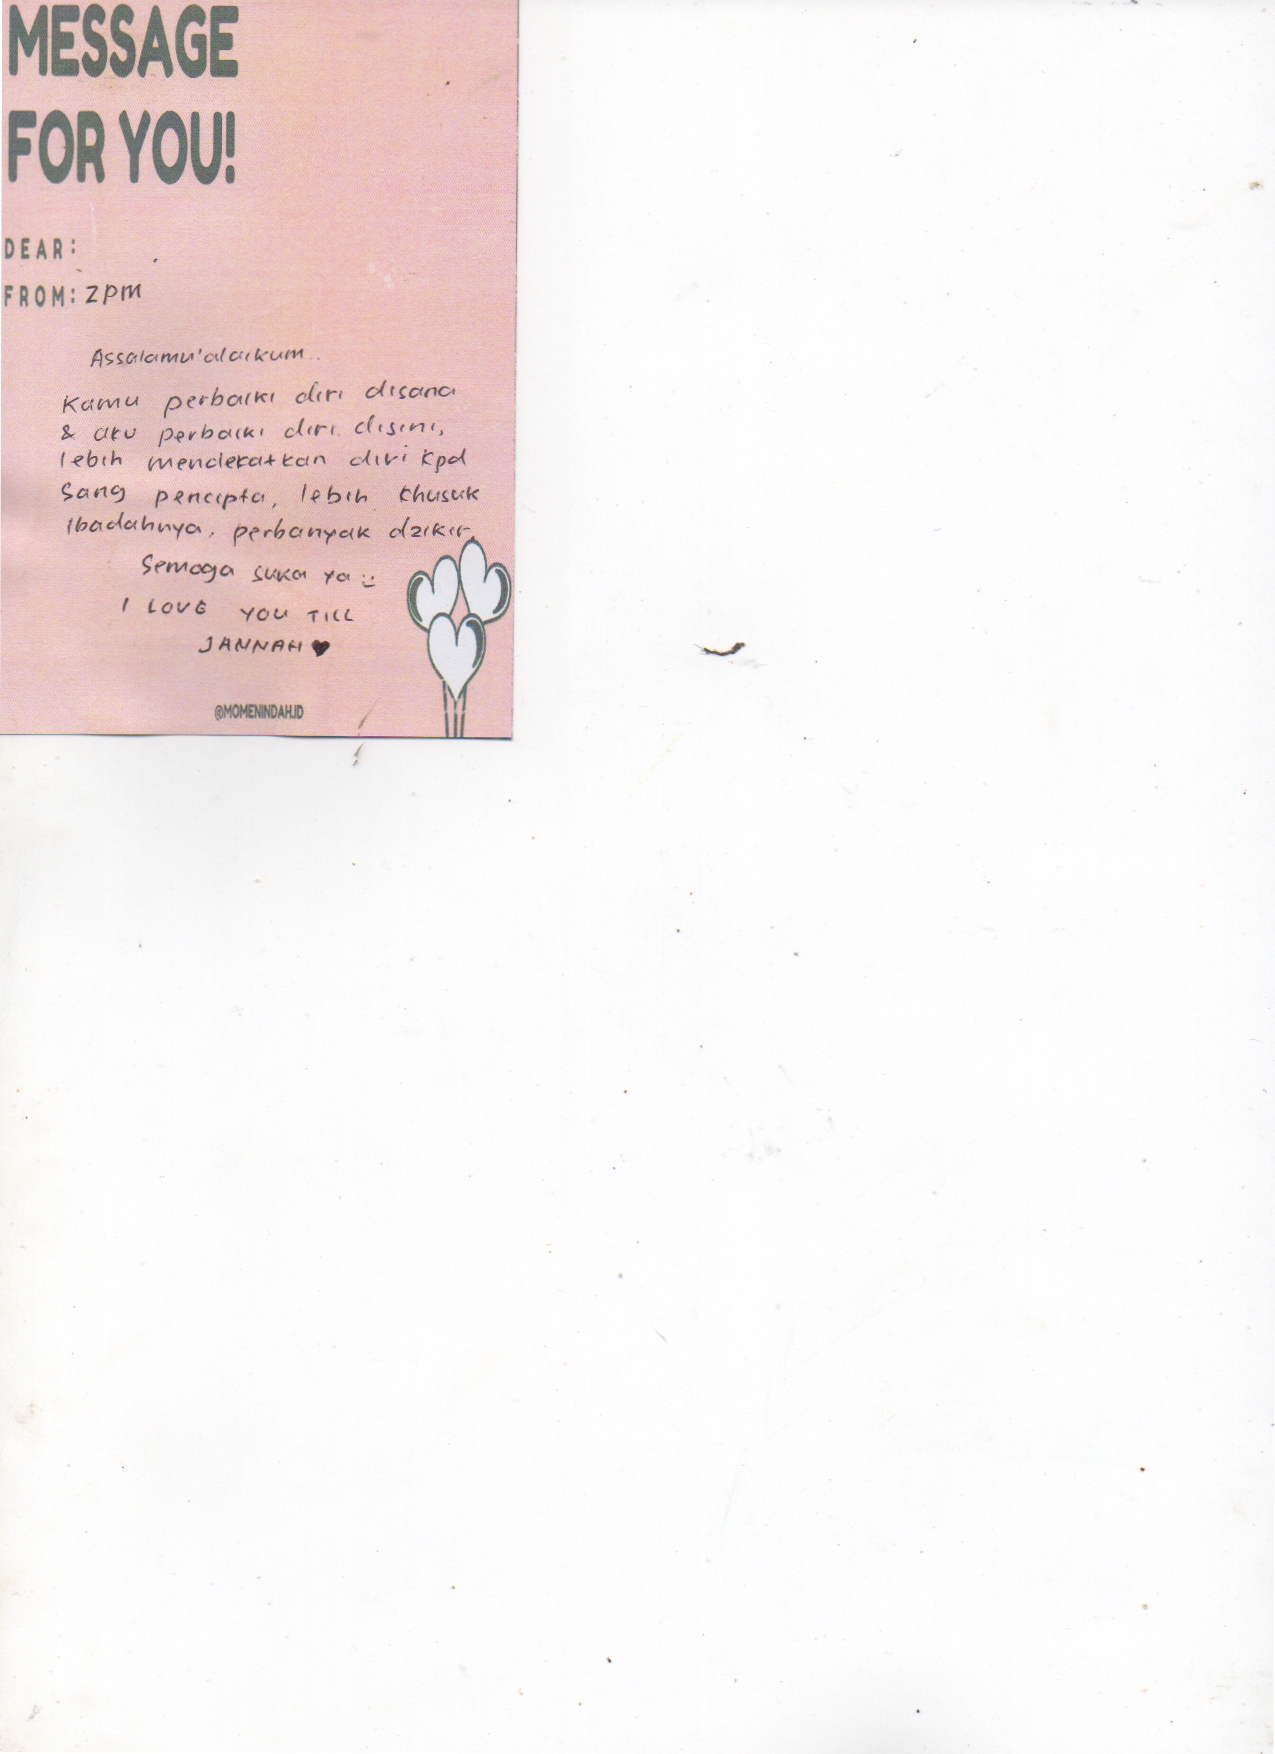 MESSAGE
FOR YOU!
DEAR:
FROM: ZPM
Assalamu'alaikum..
Kamu perbaiki diri disana
& aku perbaiki diri disini,
lebih mendekatkan diri kpd
Sang pencipta, lebih khusuk
Ibadahnya, perbanyak dzikir,
Semoga suka ya :)
I LOVE YOU TILL
JANNAH ♥
@MOMENINDAH.ID